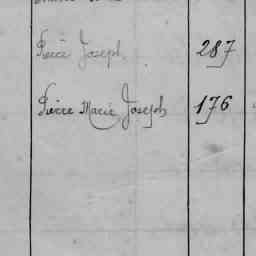 Pierre Joseph 287
Pierre Marie Joseph 176